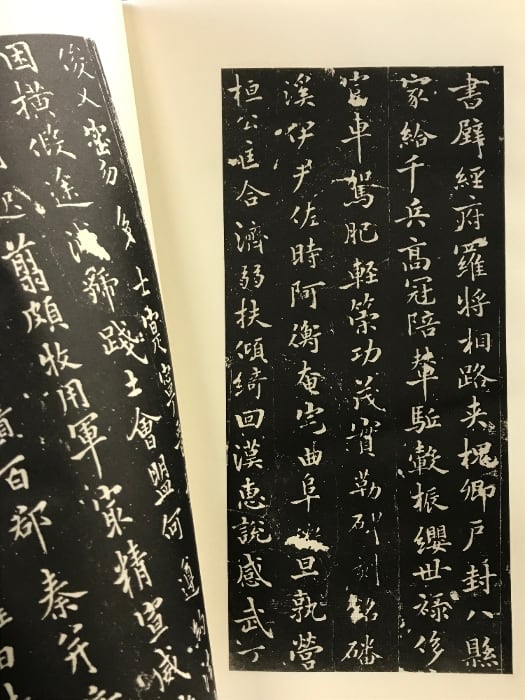 書壁經府羅將相路夾槐卿戶封八縣
家給千兵高冠陪輦駈轂振纓世祿侈
富車駕肥軽策功茂實勒碑刻銘磻
溪伊尹佐時阿衡奄宅曲阜旦孰營
桓公匡合濟弱扶傾綺回漢惠說感武丁
俊乂密勿多士寔寧
困橫假途滅虢踐土會盟何遵約法
起翦頗牧用軍最精宣威
百郡秦并